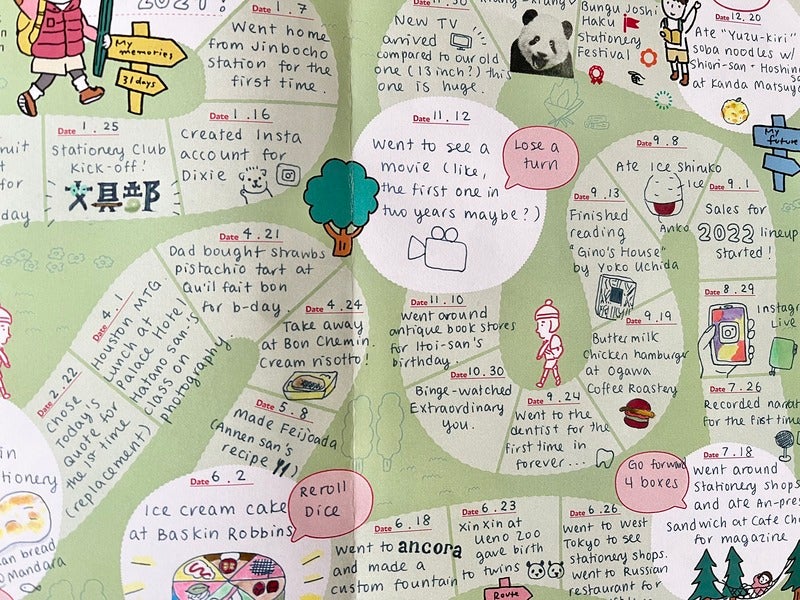 2021!
My memories
31 days
Date 1.7
Went home
from Jinbocho
station for the
first time.
Date 1.16
Created Insta
account for
Dixie
Date 1.25
Stationery Club
Kick-off!
文具部
for
day
Date 2.22
Chose
Today's
Quote for
the 1st time
(replacement)
Date 4.1
Houston MTG.
Lunch at
Palace Hotel
Hatano san's
class on
photography
Date 4.21
Dad bought strawbs
pistachio tart at
Qu'il fait bon
for b-day.
Date 4.24
Take away
at Bon Chemin.
Cream risotto!
Date 5.8
Made Feijoada
(Annen san's
recipe)
Date 6.2
Ice cream cake
at Baskin Robbins
Reroll
Dice
Date 6.18
Went to ancora
and made a
custom fountain
Date 6.23
XinXin at
Ueno Zoo
gave birth
to twins
Route
Date 6.26
Went to West
Tokyo to see
stationery shops.
Went to Russian
restaurant for
Date 7.18
Went around
Stationery shops
and ate An-pres
sandwich at Cafe
for magazine
Go forward
4 boxes
Date 7.26
Recorded
for the first time
Date 8.29
Instagram
Live
Date 9.1
Sales for
2022 lineup
started!
Date 9.8
Ate Ice Shiruko
Ice
Anko
Date 9.13
Finished
reading
"Gino's House"
by Yoko Uchida
Date 9.19
Buttermilk
Chicken hamburger
at Ogawa
Coffee Roastery
Date 9.24
Went to the
dentist for the
first time in
forever...
Date 10.30
Binge-watched
Extraordinary
you.
Date 11.10
Went around
antique book stores
for Itoi-san's
birthday.
Date 11.12
Went to see a
movie (like,
the first one in
two years maybe?)
Lose a
turn
New TV
arrived
compared to our old
one (13 inch?) this
one is huge.
Bungu Joshi
Haku
stationery
Festival
Date 12.20
Ate "Yuzu-kiri"
soba noodles w/
Shiori-san
at Kanda
My
future
stationery
bread
Mandara